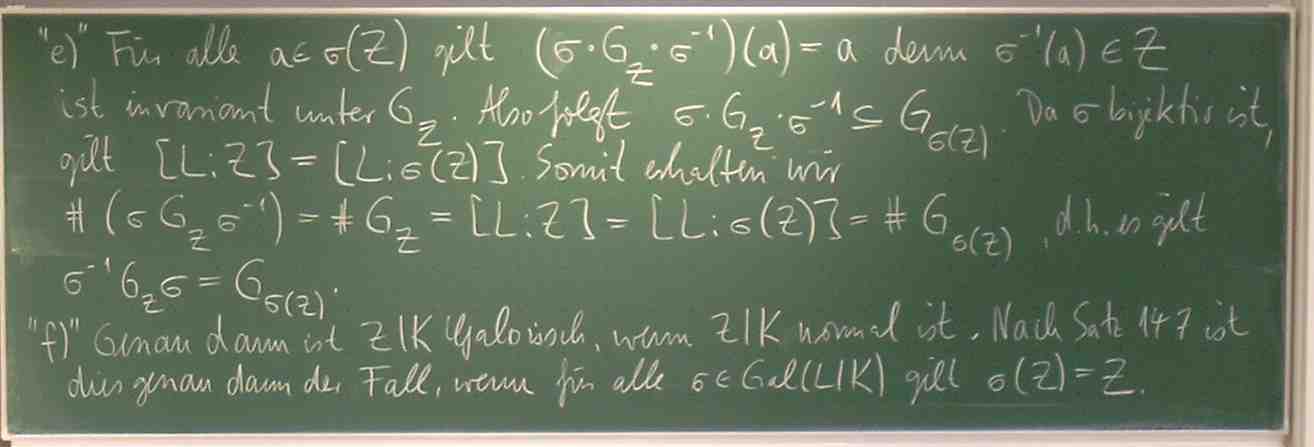 "e)" Für alle a∈σ(Z) gilt (σ·G_Z·σ⁻¹)(a)=a denn σ⁻¹(a)∈Z
ist invariant unter G_Z. Also folgt σ·G_Z·σ⁻¹⊆G_σ(Z). Da σ bijektiv ist,
gilt [L:Z]=[L:σ(Z)]. Somit erhalten wir
#(σG_Zσ⁻¹)=#G_Z=[L:Z]=[L:σ(Z)]=#G_σ(Z), d.h. es gilt
σ⁻¹G_Zσ=G_σ(Z).
"f)" Genau dann ist Z|K Galoissch, wenn Z|K normal ist. Nach Satz 14.7 ist
dies genau dann der Fall, wenn für alle σ∈Gal(L|K) gilt σ(Z)=Z.